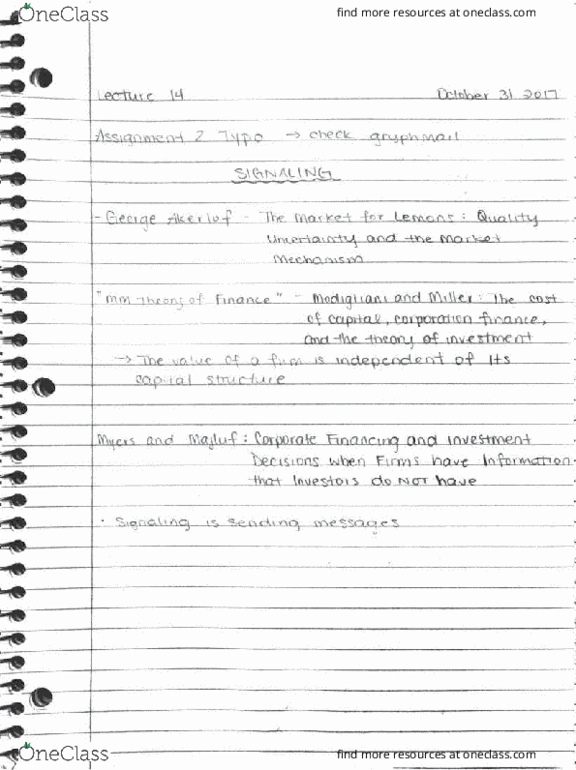 OneClass
find more resources at oneclass.com
Lecture 14 October 31 2017
Assignment 2 Typo → check gryphmail
SIGNALING
- George Akerlof - The Market for Lemons: Quality
Uncertainty and the Market
Mechanism
"MM Theory of Finance" - Modigliani and Miller: The cost
of capital, corporation finance,
and the theory of investment
→ The value of a firm is independent of its
capital structure
Myers and Majluf: Corporate Financing and Investment
Decisions when Firms have Information
that Investors do NOT have
· Signaling is sending messages
OneClass
find more resources at oneclass.com